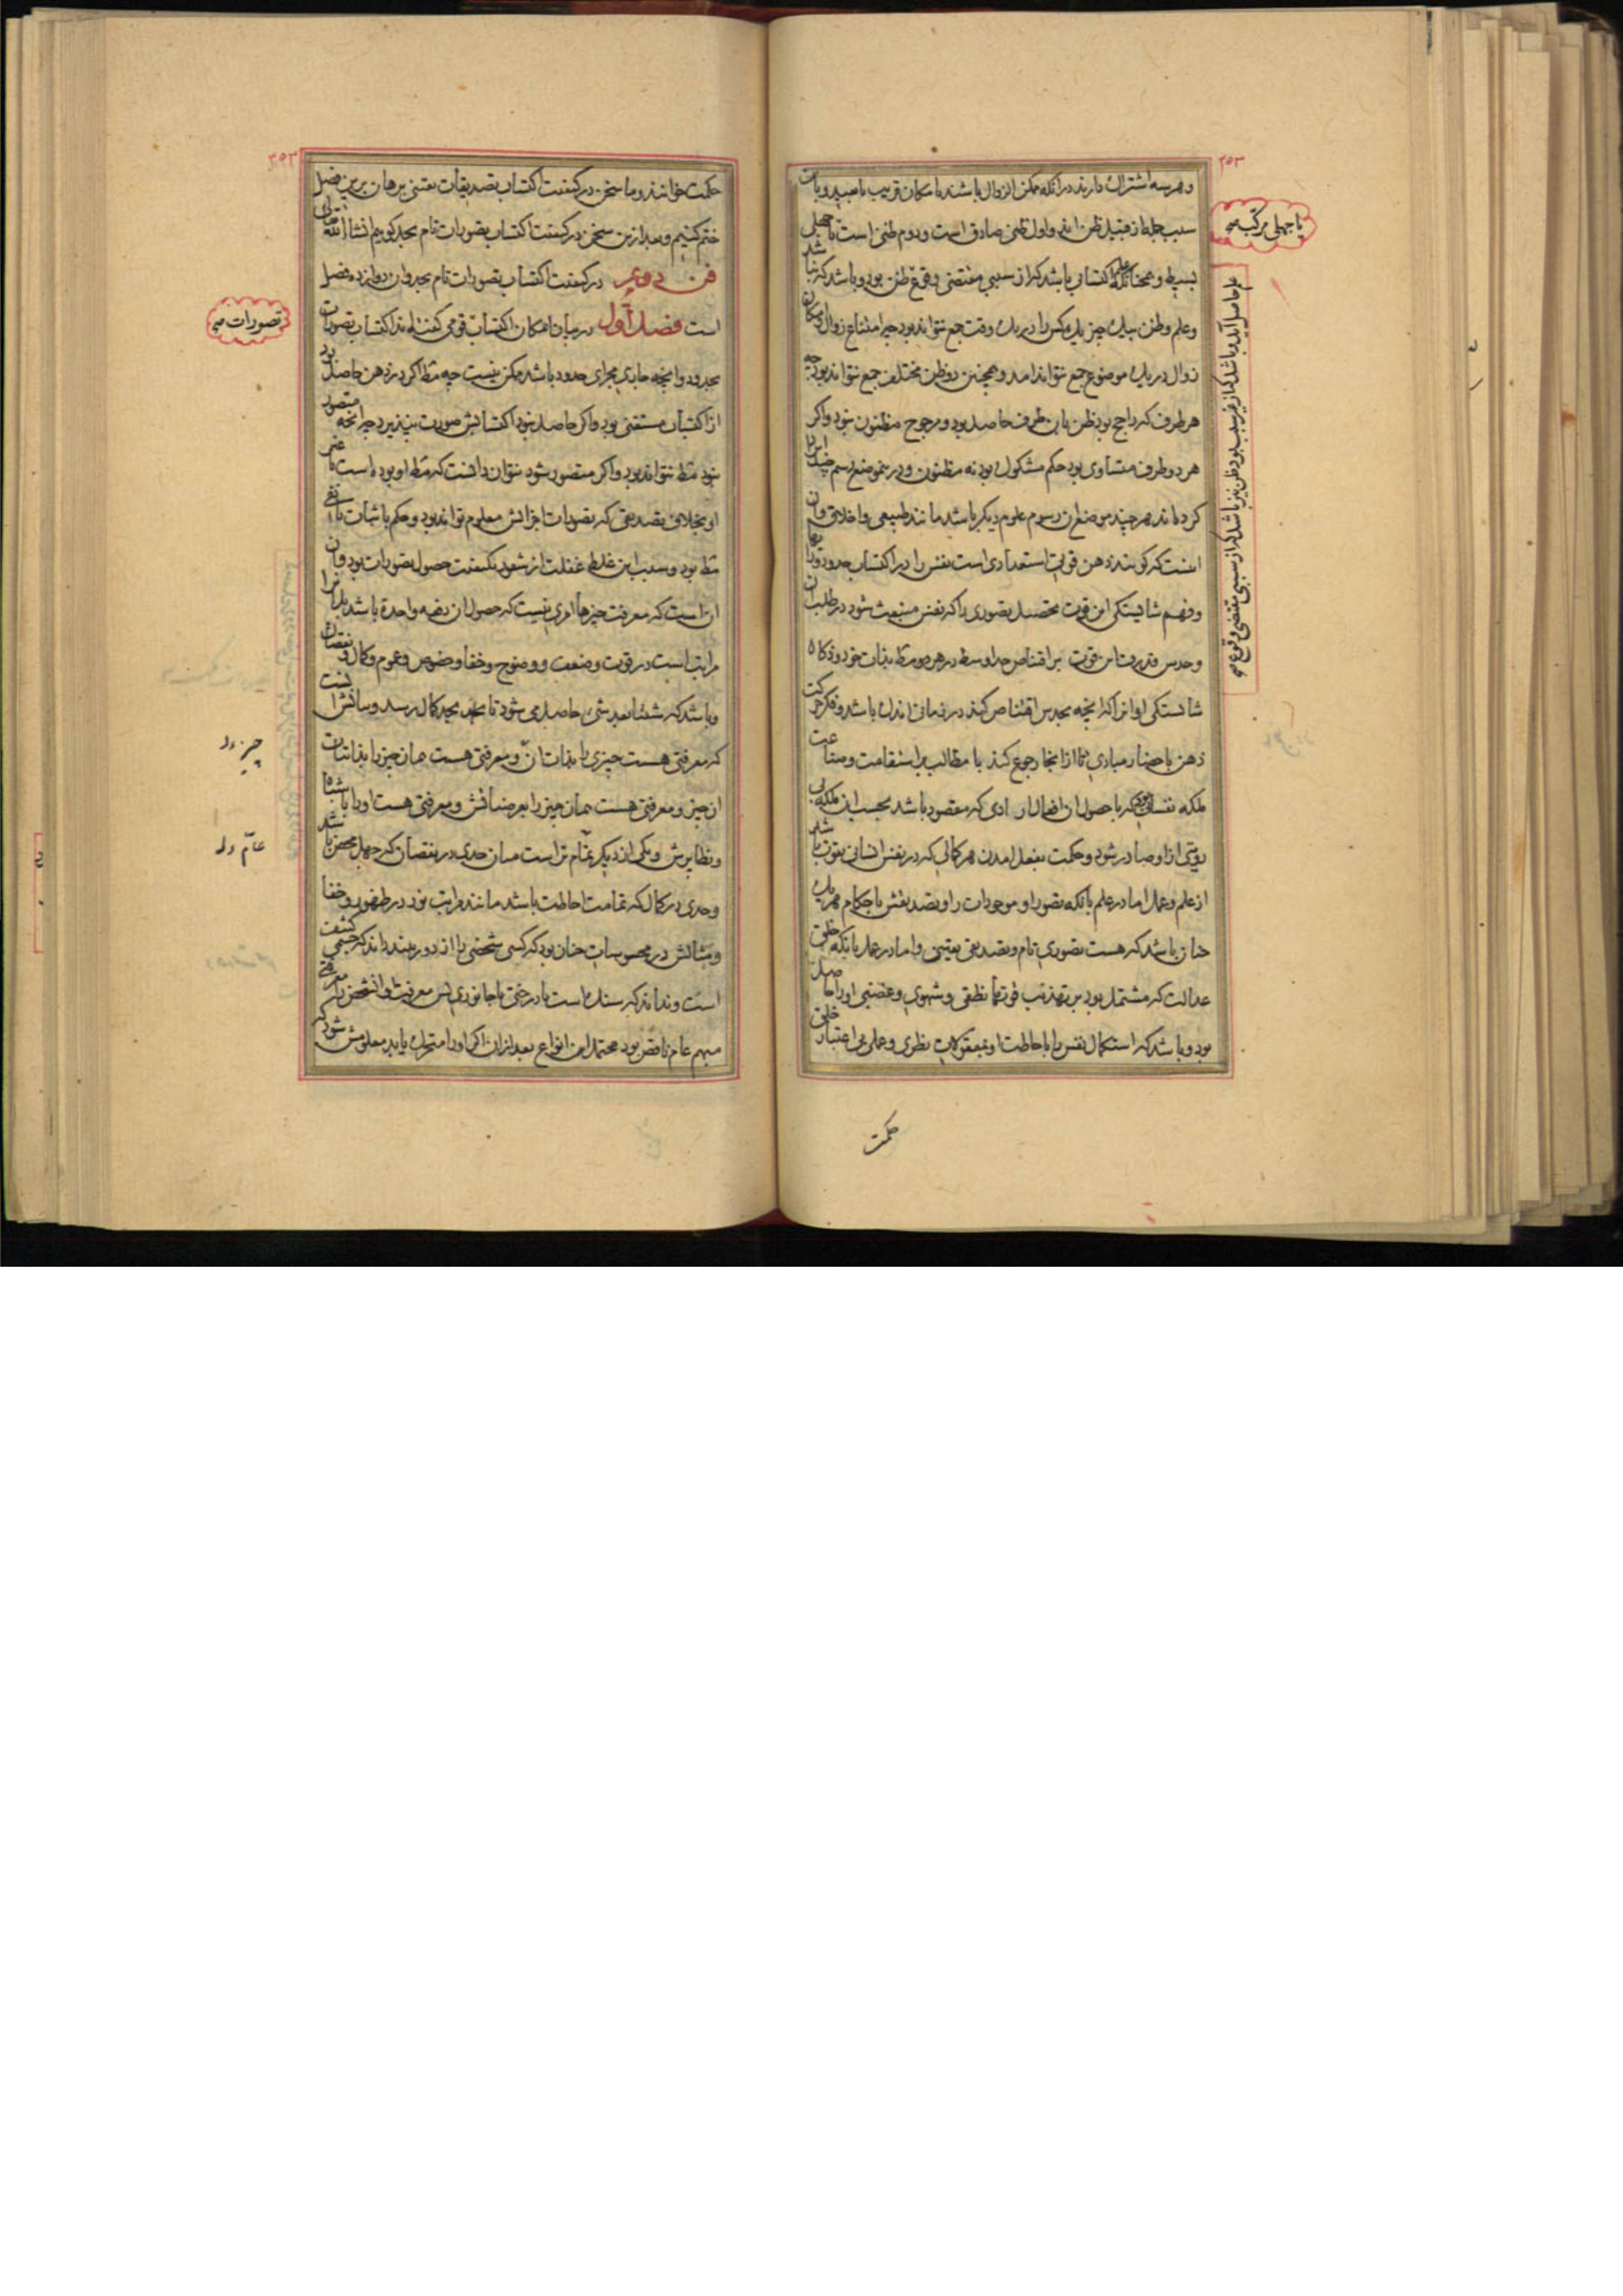 ۲۵۳
و هر سه اشتراک دارند در آنکه ممکن الزوال باشند یا مکان قریب یا بعید و باین
سبب جمله از قبیل ظن اند و اول ظنی صادق است و دوم ظنی است با جهل
یا جهلی مرکب صح
بسیط و همچنانکه علم اکتسابی باشد که از سببی مقتضی وقوع ظن بود و باشد که نباشد
وعلم وظن بیک چیز یک کس را در یک وقت جمع نتواند بود چه امتناع زوال و امکان
زوال در یک موضوع جمع نتواند آمد و همچنین دو ظن مختلف جمع نتواند بود چه
هر طرف که راجح بود ظن بان طرف حاصل بود و مرجوح مظنون نبود واگر
هر دو طرف متساوی بود حکم مشکوک بود نه مظنون و درین موضع رسم چند ایراد
کرده اند هر چند موضع آن رسوم علوم دیگر باشد مانند طبیعی و اخلاقی و آن
اینست که گویند ذهن قوت استعدادی است نفس را در اکتساب حدود و آرا
وفهم شایستگی این قوت تحصیل تصوری را که نفس منبعث شود در طلب آن
وحدس قدرت این قوت بر اقتناص حد اوسط در هر مط بذات خود و ذکاء
شایستگی او آنرا که آنچه بحدس اقتناص کند در زمانی اندک باشد و فکر حرکت
ذهن باحضار مبادی تا از آنجا رجوع کند با مطالب بر استقامت و صناعت
ملکه نفسانی بود که با حصول آن افعال ارادی که مقصود باشد بحسب آن ملکه بی
رویتی از او صادر شود و حکمت بفعل آمدن هر کمالی که در نفس انسانی بقوت باشد
از علم و عمل اما در علم بآنکه تصور او موجودات را و تصدیقش باحکام هر یک
چنان باشد که هست تصوری تام و تصدیقی یقینی و اما در عمل بآنکه خلق
عدالت که مشتمل بود بر تهذیب قوتهاء نطقی و شهوی و غضبی او را حاصل
بود و باشد که استکمال نفس را باحاطت او بمعقولات نظری و عملی بی اعتبار خلق
حکمت
۲۵۳
حکمت خوانند و ما سخن در کیفیت اکتساب تصدیقات یقینی ببرهان برین فصل
ختم کنیم و بعد ازین سخن در کیفیت اکتساب تصورات تام بحد گوییم انشا الله تعالی
فن دویم در کیفیت اکتساب تصورات تام بحد و آن دوازده فصل
است فصل اول در بیان امکان اکتساب قومی گفته اند اکتساب تصورات
تصورات صح
بحدود و آنچه جاری مجرای حدود باشد ممکن نیست چه مط اگر در ذهن حاصل بود
از اکتساب مستغنی بود و اگر حاصل نبود اکتسابش صورت نپذیرد چه آنچه متصور
نبود مط نتواند بود و اگر متصور شود نتوان دانست که مط او بوده است یا غیر
او بخلاف تصدیقی که تصورات اجزائش معلوم تواند بود و حکم باثبات یا نفی
مط بود و سبب این غلط غفلت از شعور بکیفیت حصول تصورات بود و آن
آن است که معرفت چیزها امری نیست که حصول آن دفعه واحدة باشد بل آنرا
مراتب است در قوت و ضعف و وضوح و خفا و خصوص و عموم و کمال و نقصان
و باشد که شیئا بعد شیء حاصل می شود تا بحد کمال رسد و بیانش آنست
که معرفتی هست چیزی را بذات آن و معرفتی هست همان چیز را بذاتیات
چیز دل
آن چیز و معرفتی هست همان چیز را بعرضیاتش و معرفتی هست او را باشباه
و نظایرش و یکی از دیگر تمام تر است میان حدی در نقصان که جهل محض باشد
عام دل
و حدی در کمال که تمامت احاطت باشد مانند مراتب نور در ظهور و خفا
و مثالش در محسوسات چنان بود که کسی شخصی را از دور بیند داند که جسمی کثیف
است و نداند که سنگ است یا درختی یا جانوری پس معرفت او آن شخص را معرفتی
مبهم عام ناقص بود محتمل این انواع بعد از آن اگر او را متحرک یابد معلومش شود که